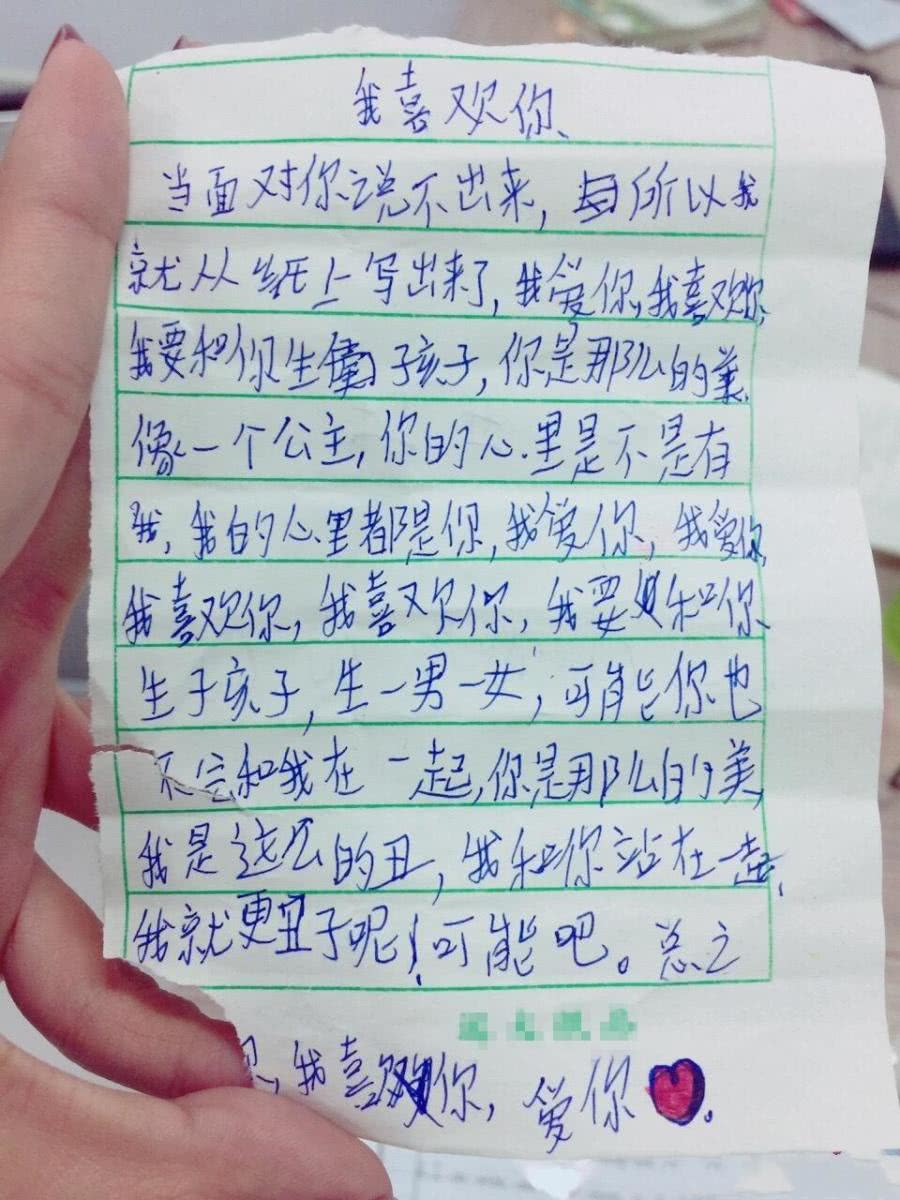 我喜欢你、
当面对你说不出来，所以我
就从纸上写出来了，我爱你，我喜欢你，
我要和你生孩子，你是那么的美，
像一个公主，你的心里是不是有
我，我的心里都是你，我爱你，我爱你，
我喜欢你，我喜欢你，我要和你
生子孩子，生一男一女，可能你也
不会和我在一起，你是那么的美，
我是这么的丑，我和你站在一起，
我就更丑了呢！可能吧。总之
，我喜欢你，爱你